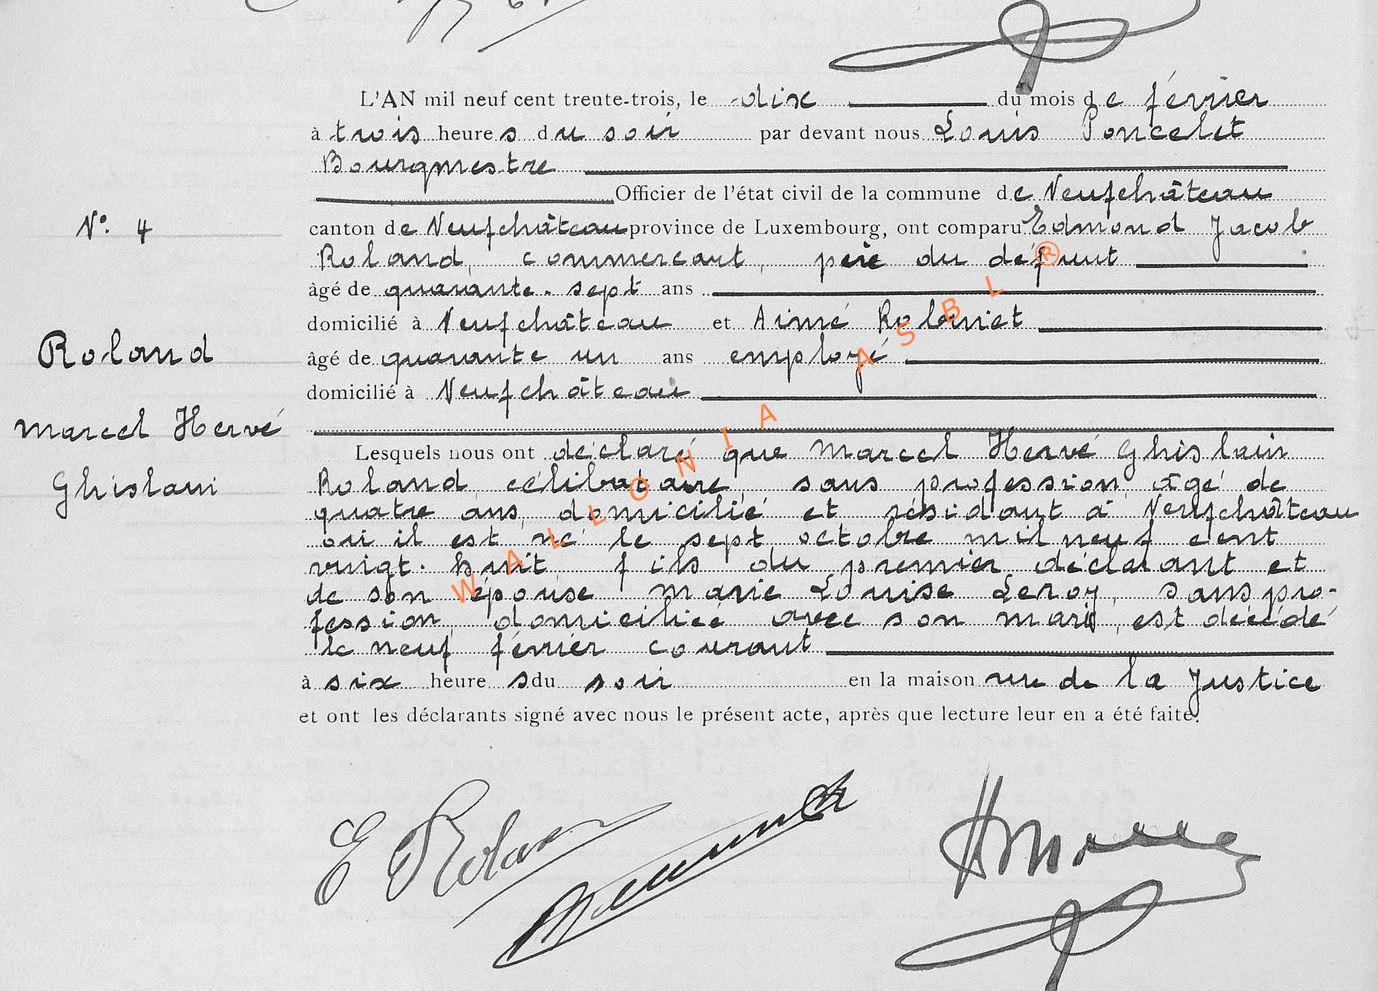 L'AN mil neuf cent trente-trois, le dix du mois de février
à trois heures du soir par devant nous Louis Poncelet
Bourgmestre
Officier de l'état civil de la commune de Neufchâteau
N°. 4
canton de Neufchâteau province de Luxembourg, ont comparu Edmond Jacob
Roland, commercant, père du défunt
âgé de quarante-sept ans
domicilié à Neufchâteau et Aimé
Roland
âgé de quarante un ans employé
domicilié à Neufchâteau
Marcel Hervé
Ghislain
Lesquels nous ont déclaré que Marcel Hervé Ghislain
Roland, célibataire, sans profession, âgé de
quatre ans, domicilié et résidant à Neufchâteau
où il est né le sept octobre mil neuf cent
vingt-huit, fils du premier déclarant et
de son épouse Marie Louise Leroy, sans pro-
fession, domiciliée avec son mari, est décédé
le neuf février courant
à six heures du soir en la maison rue de la Justice
et ont les déclarants signé avec nous le présent acte, après que lecture leur en a été faite.
E Roland
WALLONIA ASBL ®